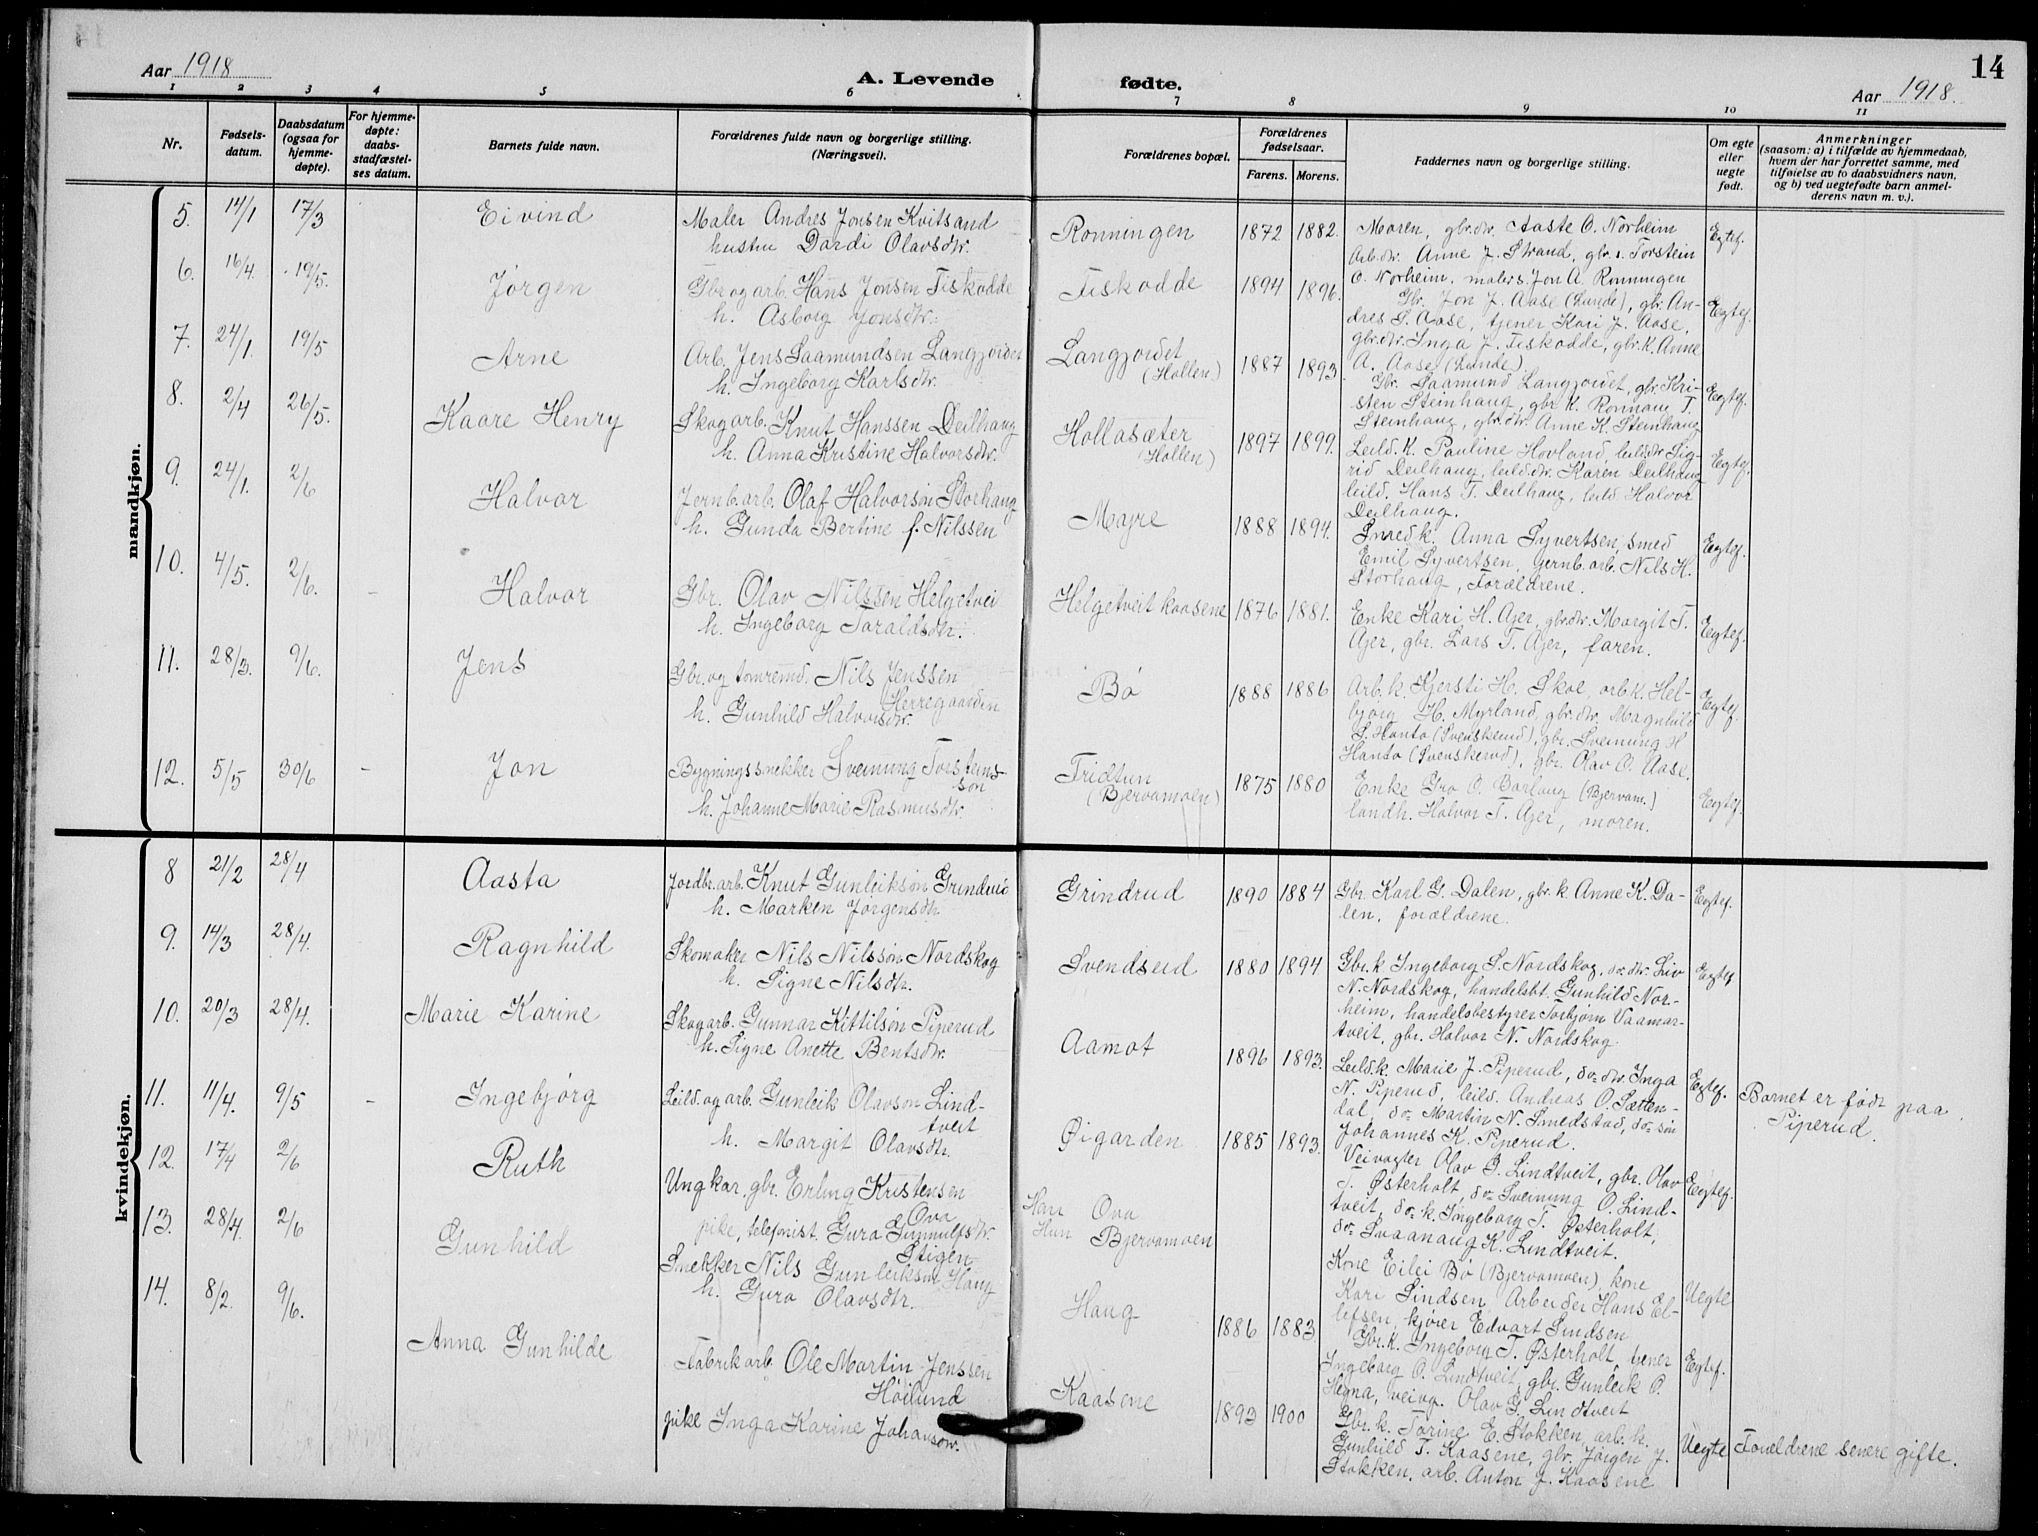 14
Aar 1918
A. Levende fødte.
Aar 1918.
1 2 3 4 5 6 7 8 9 10 11
Nr.
Fødsels-
datum.
Daabsdatum
(ogsaa for
hjemme-
døpte).
For hjemme-
døpte:
daabs-
stadfæstel-
ses datum.
Barnets fulde navn.
Forældrenes fulde navn og borgerlige stilling.
(Næringsvei).
Forældrenes bopæl.
Forældrenes
fødselsaar.
Farens. Morens.
Faddernes navn og borgerlige stilling.
Om egte
eller
uegte
født.
Anmerkninger
(saasom: a) i tilfælde av hjemmedaab,
hvem der har forrettet samme, med
tilføielse av to daabsvidners navn,
og b) ved uegtefødte barn anmel-
derens navn m. v.).
mandkjøn.
5. 14/1 17/3 Eivind
Maler Andres Jonsen Kvitsand
hustru Dordi Olavsdtr.
Ronningen 1872 1882.
Moren, gbr.dtr. Aaste O. Norheim
Arb.dtr. Anne J. Strand, gbr.s. Torstein
O. Norheim, malers. Jon A. Ronningen
Egtef.
6. 16/4 19/5. Jørgen
Gbr og arb. Hans Jonsen Fiskodde
h. Asborg Jonsdtr.
Fiskodde 1894 1896.
Gbr. Jon J. Aase (Lunde), gbr. An-
dres S. Aase, tjener Kari J. Aase,
gbr.dtr. Inga J. Fiskodde, gbr.k. Anne
A. Aase (Lunde)
Egtef.
7. 24/1. 19/5 Arne
Arb. Jens Saamundsen Langjordet
h. Ingeborg Karlsdtr.
Langjordet
(Hollen) 1887 1893
Gbr. Saamund Langjordet, gbr. Kri-
sten Steinhaug, gbr k. Ronnaug T.
Steinhaug, gbr.dtr. Anne K. Steinhaug
Egtef.
8. 2/4 26/5. Kaare Henry
Skogarb. Knut Hanssen Deilhaug
h. Anna Kristine Halvorsdtr.
Hollasæter
(Hollen) 1897 1899.
Leild.k. Pauline Hovland, leildsdtr Sig-
rid Deilhaug, leild.dtr. Karen Deilhaug
leild. Hans T. Deilhaug, leild Halvor
Deilhaug.
Egtef.
9. 24/1. 2/6 Halvor
Jernb.arb. Olaf Halvorson Storhaug
h. Gunda Bertine f. Nilssen
Majre 1888 1894.
Smedk. Anna Syvertsen, smed
Emil Syvertsen, Jernb.arb. Nils H.
Storhaug, Forældrene.
Egtef.
10. 4/5. 2/6. - Halvor
Gbr. Olav Nilssen Helgetvei
h. Ingeborg Toraldsdtr.
Helgetveit kaasene 1876 1881.
Enke Kari H. Ajer, gbr.dtr. Margit T.
Ajer, gbr. Lars T. Ajer, faren.
Egtef.
11. 28/3. 9/6. Jens
Gbr. og tømremd. Nils Jenssen
Herregaarden
h. Gunhild Halvorsdtr.
Bø 1888 1886
Arb. k. Kjersti H. Skoe, arb k. Hel-
bjørg H. Myrland, gbr.dtr. Magnhild
S. Hanto (Svenskerud), gbr. Sveinung H
Hanto (Svenskerud), gbr. Olav O. Aase.
Egtef.
12. 5/5 30/6 - Jon
Bygningssnekker Sveinung Torstens-
son
h. Johanne Marie Rasmusdtr.
Fridtun
(Bjervamoen) 1875 1880
Enke Gro O. Borlaug (Bjervam.)
landh. Halvor T. Ajer, moren.
Egtef.
kvindekjøn.
8 21/2 28/4 Aasta
Jordbr.arb. Knut Gunleikson Grindrud
h. Marken Jørgensdtr.
Grindrud 1890 1884
Gbr. Karl G. Dalen, gbr. k Anne K. Da-
len, forældrene.
Egtef.
9. 14/3 28/4. Ragnhild
Skomaker Nils Nilsson Nordskog
h. Signe Nilsdtr.
Svendseid 1880 1894
Gbr. k Ingeborg S. Nordskog, do dtr. Liv
N. Nordskog, handelsbt. Gunhild Nor-
heim, handelsbestyrer Torbjørn Vaamar-
tveit, gbr. Halvor N. Nordskog.
Egtef
10. 20/3 28/4. Marie Karine
Skogarb. Gunnar Kittilson Piperud
h. Signe Anette Bentsdtr.
Aamot 1896 1893.
Leild.k. Marie J. Piperud, do dtr. Inga
N. Piperud, leild. Andreas O. Sætten-
dal, do Martin N. Smedstad, do søn
Johannes K. Piperud.
Egtef.
Barnet er født paa
Piperud.
11. 11/4. 9/5 - Ingebjørg
Leild. og arb. Gunleik Olavson Lind-
tveit
h. Margit Olavsdtr.
Øigarden 1885 1893.
Veivogter Olav G. Lindtveit, gbr. Olav
J. Østerholt, do Sveinung O. Lind-
tveit, do k. Ingeborg T. Østerholt,
do Svaanaug K. Lindtveit.
Egtef.
12. 17/4 2/6 Ruth
Ungkar, gbr. Erling Kristensen
Ova
pike, telefonist. Guro Gunnulfsdtr.
Stigen
Han Ova
Hun Bjervamoen
Kone Eilei Bø (Bjervamoen), kone
Kari Lindsen, Arbeider Hans El-
lefsen, kjører Edvart Lindsen
Uegte
13. 28/4. 2/6 Gunhild
Snekker Nils Gunleikson Haug
h. Guro Olavsdtr.
Haug 1886 1883.
Gbr.k. Ingeborg T. Østerholt, tjener
Ingeborg O. Lindtveit, gbr. Gunleik O.
Hegna, veivog. Olav G. Lindtveit
Egtef.
14. 8/2. 9/6. Anna Gunhilde
Fabrikarb. Ole Martin Jenssen
Høilund
pike Inga Karine Johansdtr.
Kaasene 1893 1900
Gbr.k. Torine E. Stokken, arb. k.
Gunhild T. Kaasene, gbr. Jørgen J.
Stokken, arb. Anton J. Kaasene
Uegte
Forældrene senere gifte.